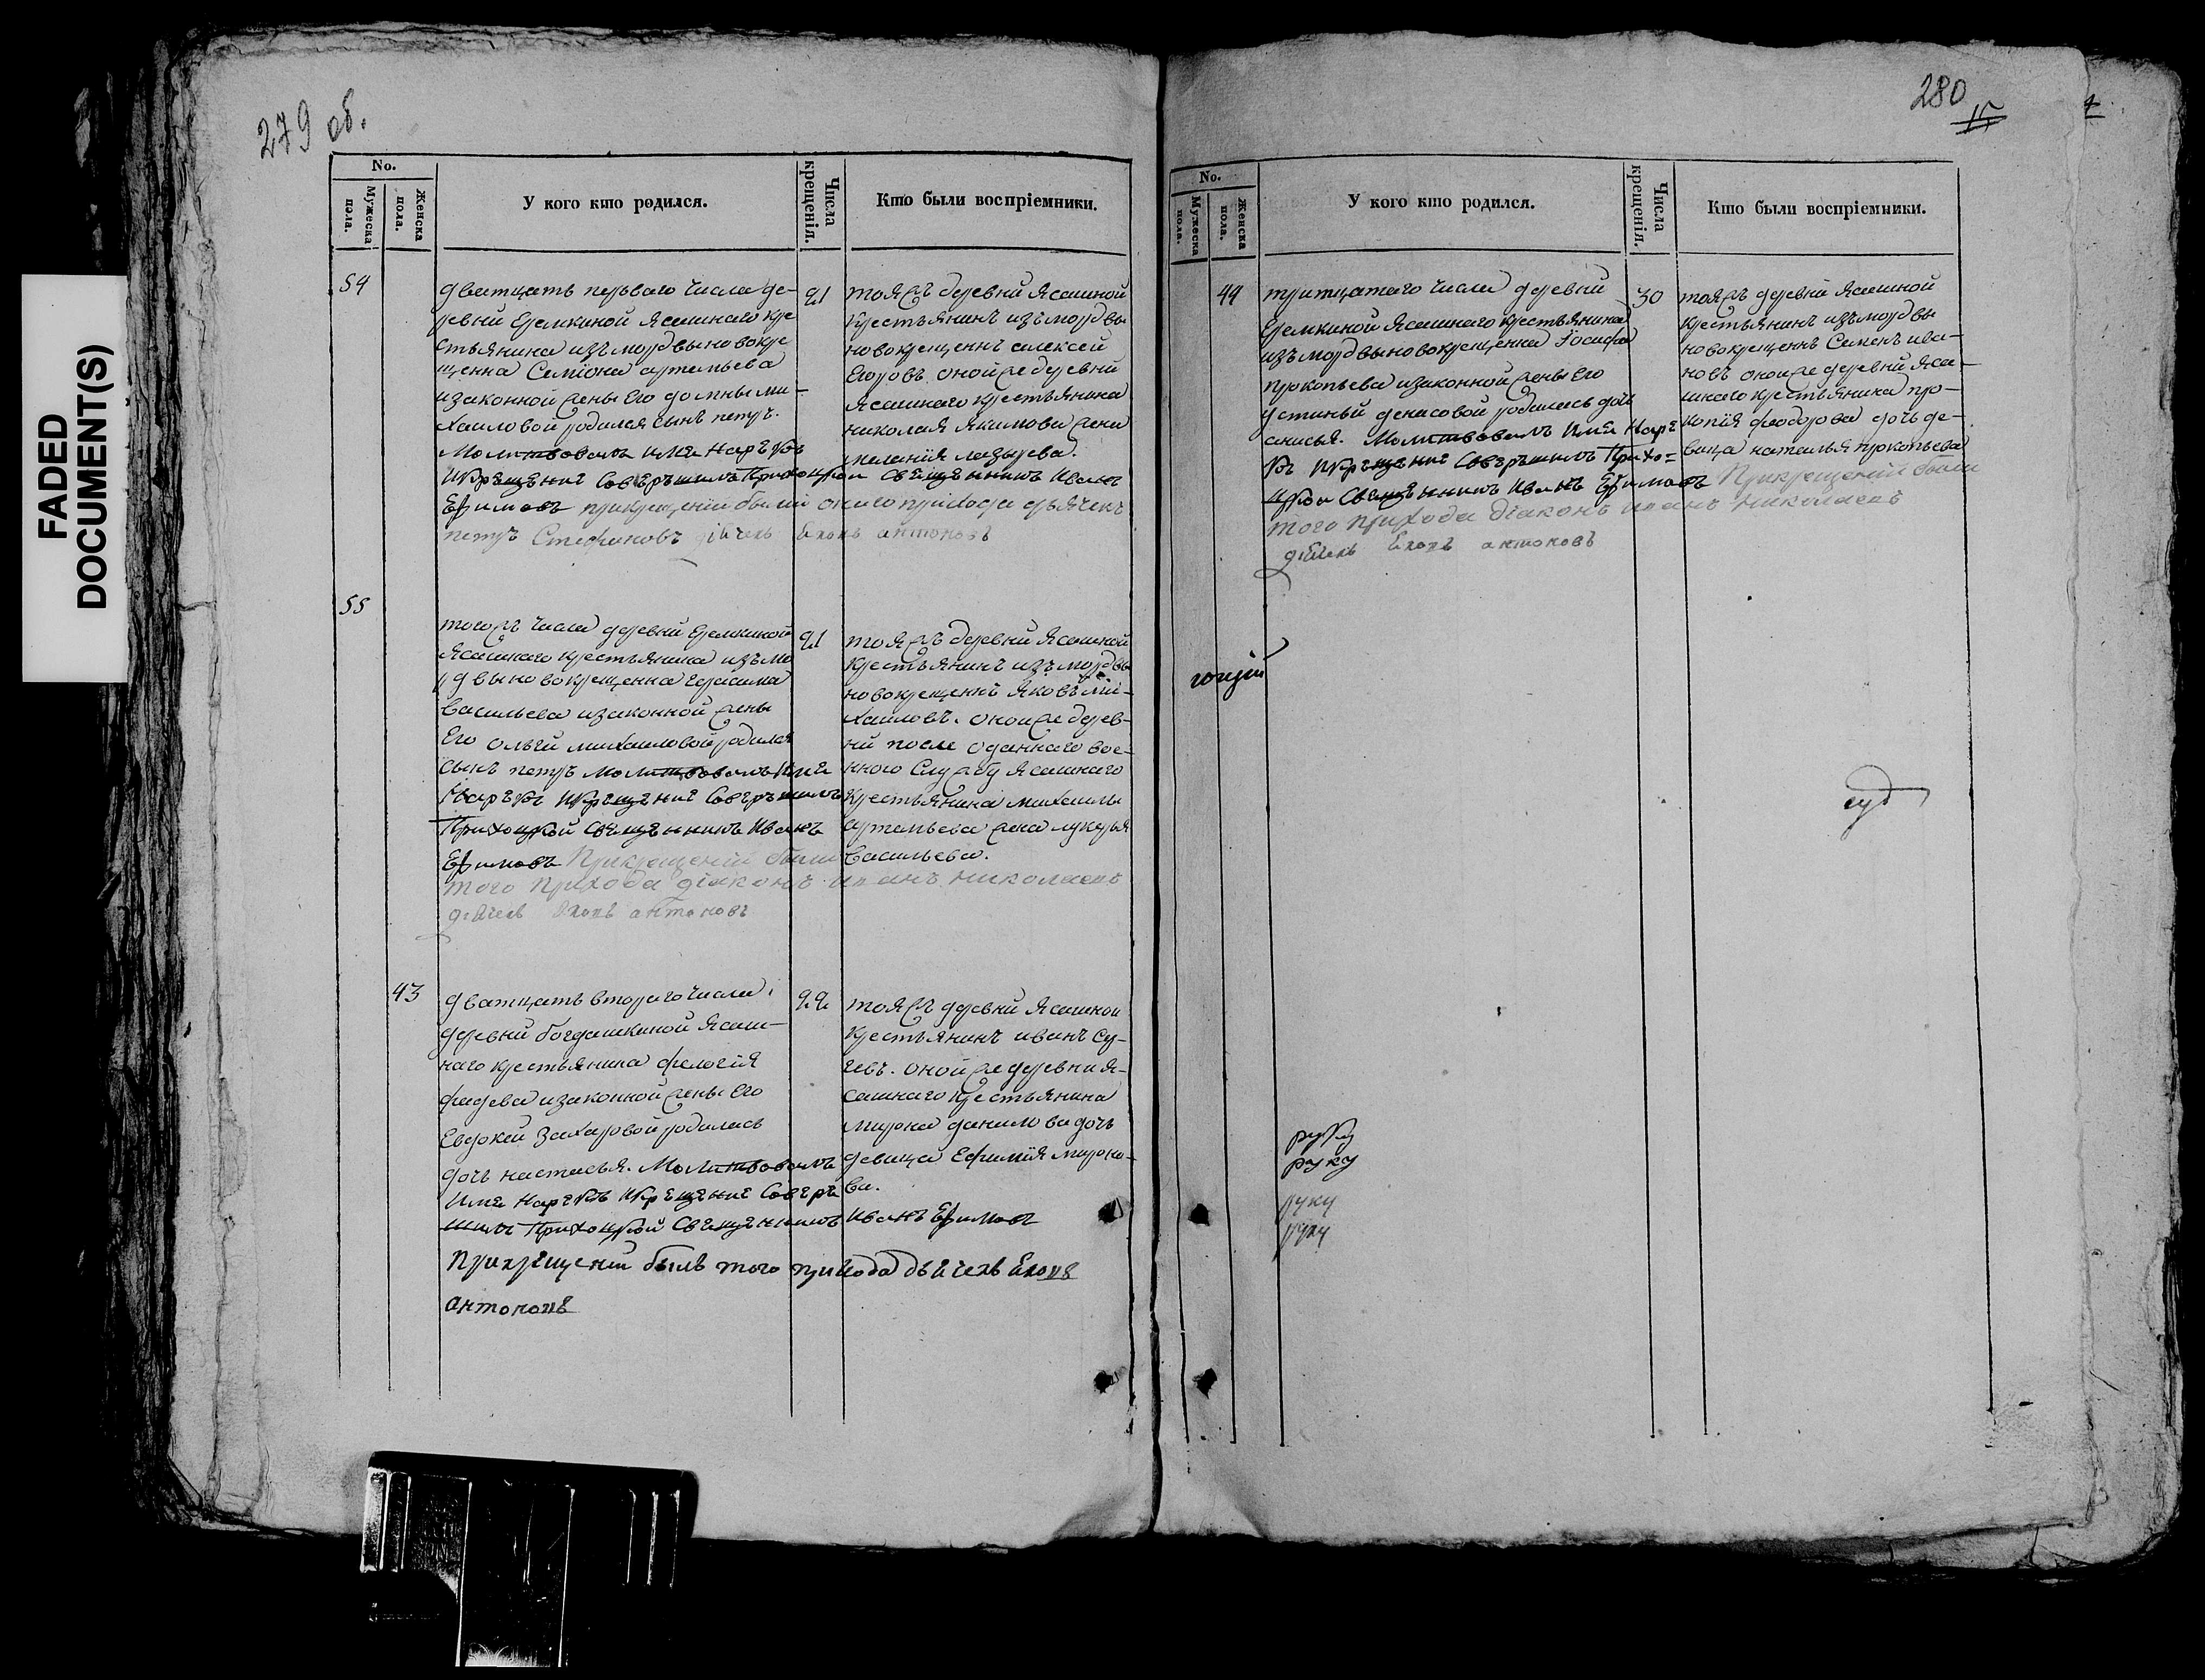 FADED
DOCUMENT(S)
279 об.
No.
Мужеска пола.
Женска пола.
У кого кто родился.
Числа крещенія.
Кто были воспріемники.
54
дватцать перьваго числа де-
ревни Еремкиной Ясашнаго кре
стьянина изъ мордвы новокре
щенна Семiона артемьева
изаконной жены Его домны ми-
хаиловой родился сынъ петръ.
Молитвовалъ имя Нарѣкъ
Икрещение Совершилъ Приходской Священникъ Иванъ
Ефимовъ прикрещении были онаго прихода дьячекъ
петръ Стефановъ дiячекъ Яковъ антоновъ
21
тояжъ деревни Ясашной
крестьянинъ изъ мордвы
новокрещеннъ алексей
Егоровъ. оной же деревни
Ясашнаго крестьянина
николая Якимова жена
меланiя лазырева.
55
тогожъ числа деревни Еремкиной
Ясашнаго крестьянина изъ мо
рдвы новокрещенна герасима
Васильева изаконной жены
Его ольги михаиловой родился
сынъ петръ Молитвовалъ Имя
Нарекъ Икрещение Совершилъ
Приходской Священникъ Иванъ
Ефимовъ Прикрещенiи были
того прихода дiаконъ иванъ николаевъ
дiячекъ Яковъ антоновъ
21
тояжъ деревни Ясашной
крестьянинъ изъ мордвы
новокрещеннъ Яковъ ми-
хаиловъ. оной же дерев-
ни после отданнаго вое-
нного Службу Ясашнаго
крестьянина михаилы
артемьева жена лукерья
Васильева.
43
дватцать втораго числа
деревни богдашкиной Ясаш-
наго крестьянина
фадеева изаконной жены Его
Евдокеи Захаровой родилась
дочь настасья. Молитвовалъ
Имя Нарекъ Икрещение Совер
шилъ Приходской Священникъ Иванъ Ефимовъ
Прикрещении былъ того прихода дьячекъ Яковъ
антоновъ
22
тояжъ деревни Ясашной
крестьянинъ иванъ Су-
оной же деревни Я-
сашнаго крестьянина
мирона данилова дочь
девица Ефимiя мироно-
ва.
280
15
No.
Мужеска пола.
Женска пола.
У кого кто родился.
Числа крещенія.
Кто были воспріемники.
44
тритцатаго числа деревни
Еремкиной Ясашнаго крестьянина
изъ мордвы новокрещенна Iосифа
прокопьева изаконной жены Его
устиньи денисовой родилась дочь
анисья. Молитвовалъ Имя Наре
къ Икрещение Совершилъ Прихо=
цкой Священникъ Иванъ Ефимовъ Прикрещенiи были
того прихода дiаконъ иванъ николаевъ
дiячекъ Яковъ антоновъ
30
тояжъ деревни Ясашной
крестьянинъ изъ мордвы
новокрещеннъ Семенъ ива-
новъ оной же деревни Яса-
шнаго крестьянина про-
копiя феодорова дочь де-
вица наталья прокопьева
руку
руку
руку
руку